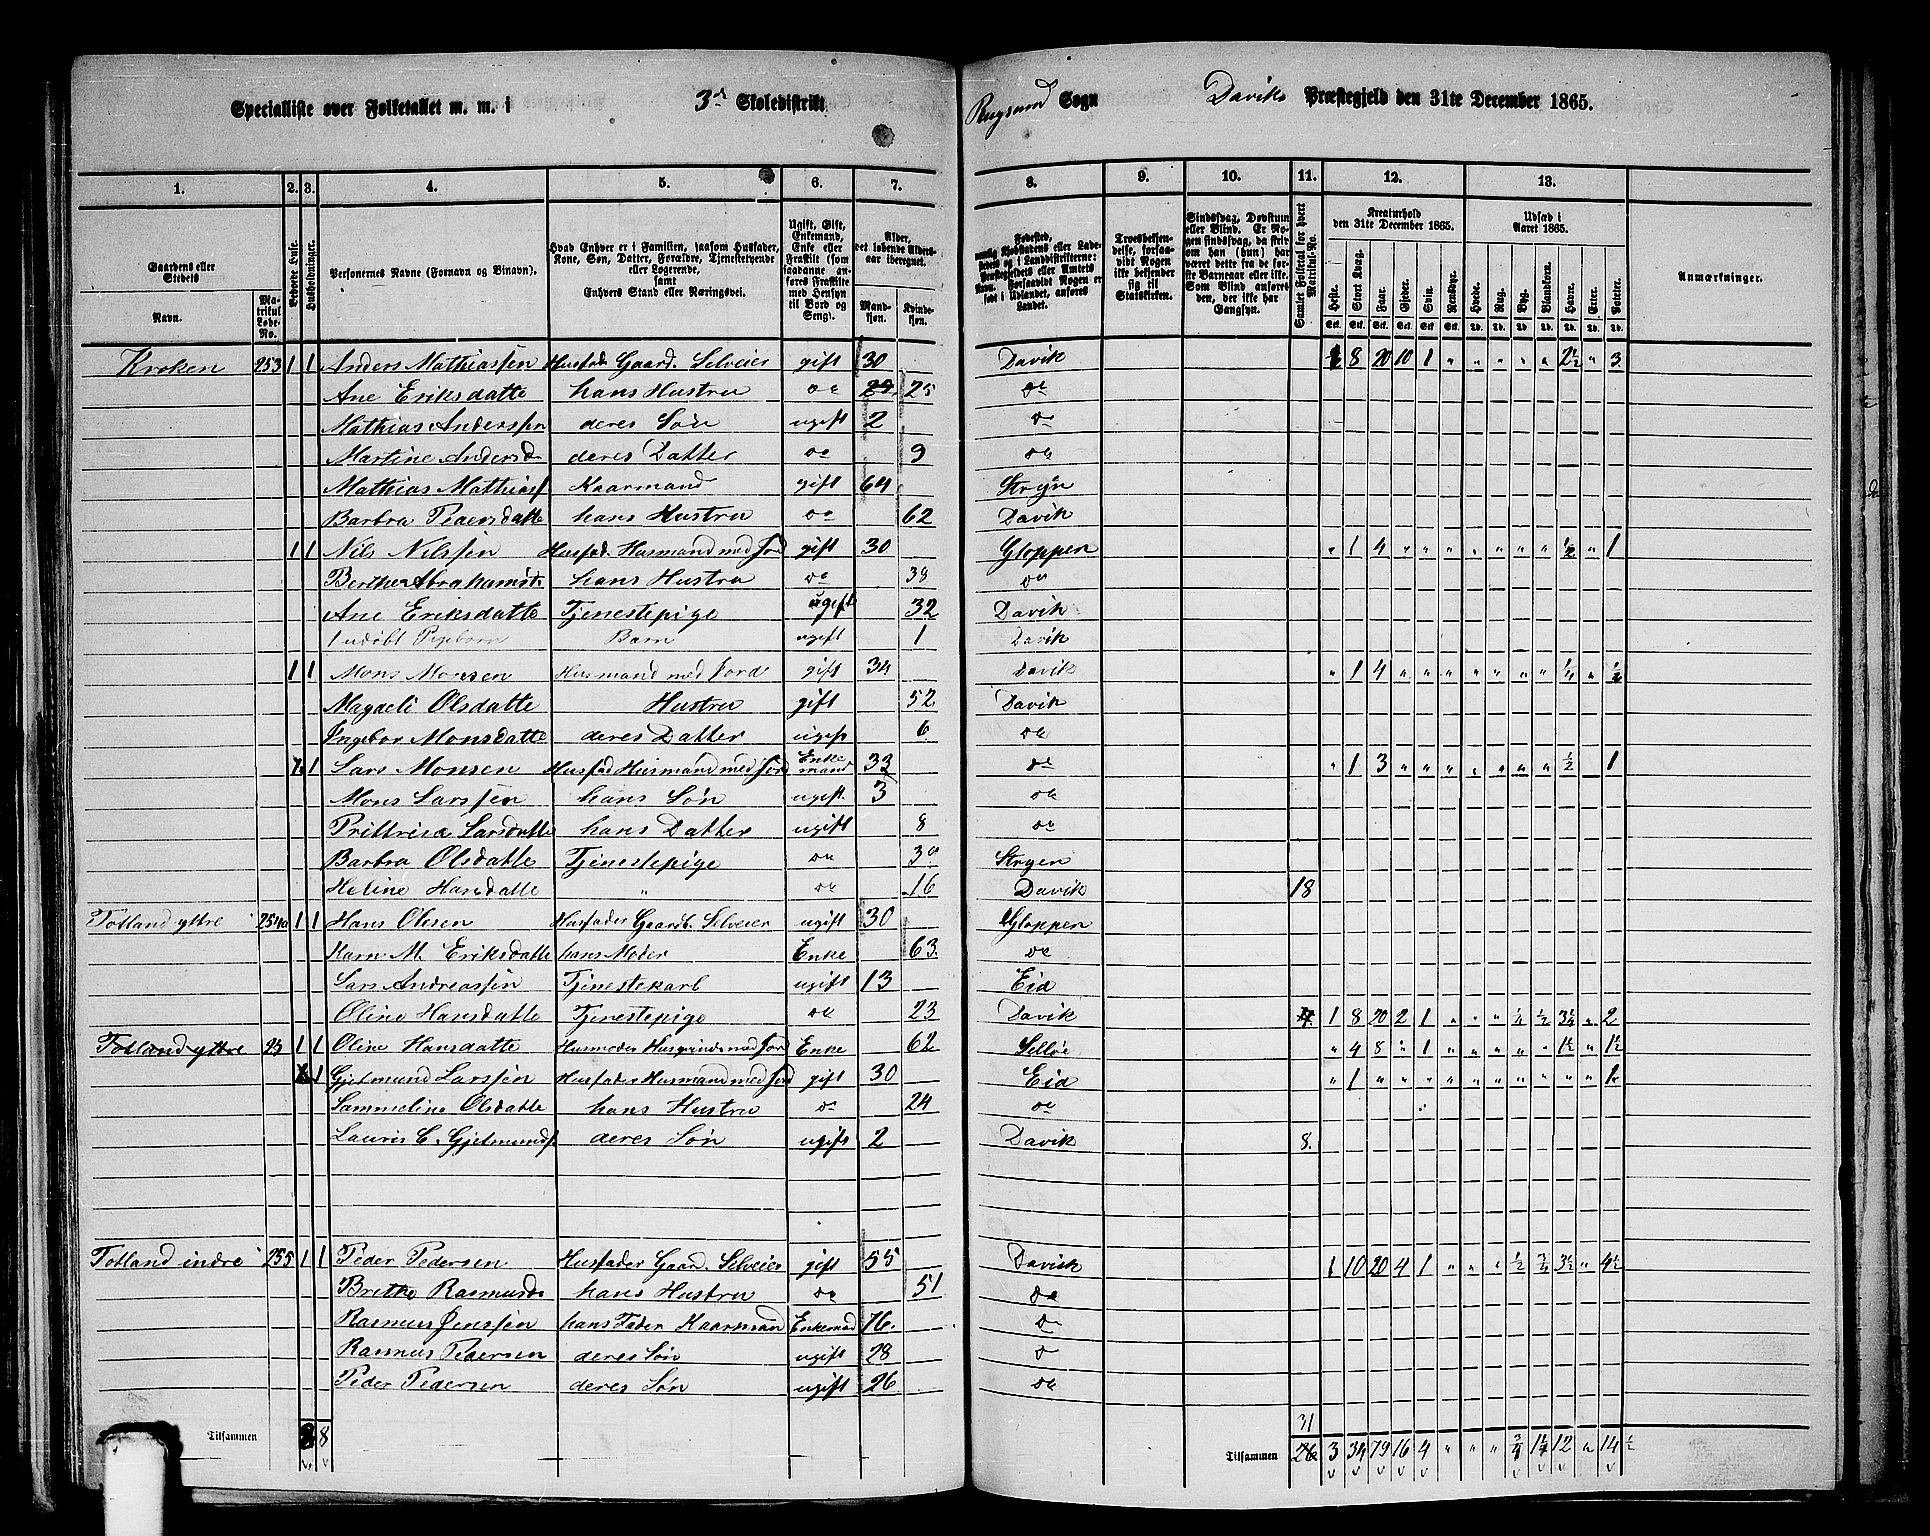 Specialliste over Folketallet m. m. i 3d Skoledistrikt Rugsund Sogn Daviks Præstegjeld den 31te December 1865.
1. 2. 3. 4. 5. 6. 7. 8. 9. 10. 11. 12. 13.
Gaardens eller Stedets
Navn.
Matrikul Løbe-No.
Beboede Huse.
Husholdninger.
Personernes Navne (Fornavn og Binavn).
Hvad Enhver er i Familien, saasom Husfader, Kone, Søn, Datter, Forældre, Tjenestetyende eller Logerende, samt Enhvers Stand eller Næringsvei.
Ugift, Gift, Enkemand, Enke eller Fraskilt (som saadanne anføres Fraskilte med Hensyn til Bord og Seng).
Alder, det løbende Aldersaar iberegnet.
Mandkjøn. Kvindekjøn.
Troesbekjendelse, forsaavidt Nogen ikke bekjender sig til Statskirken.
Sindssvag, Døvstum eller Blind. Er Nogen sindssvag, da skrives om han (hun) har været dette fra de første Barneaar eller ikke. Som Blind anføres den, der ikke har Gangsyn.
Samlet Folketal for hvert Matrikul-No.
Kreaturhold den 31te December 1865.
Heste. Stort Kvæg. Faar. Gjeder. Svin. Rensdyr.
Udsæd i Aaret 1865.
Hvede. Rug. Byg. Blandkorn. Havre. Erter. Poteter.
Anmærkninger.
Kroken 253 1 1 Anders Mathiassen Husfad. Gaard. Selveier gift 30 Davik 8 20 10 1 " " " " " 2½ " 3
Ane Eriksdatte hans Hustru do 25 do
Mathias Anderssen deres Søn ugift 2 do
Martine Andersd deres Datter do 9 do
Mathias Mathiass Kaarmand gift 64 Stryn
Barbra Pedersdatte hans Hustru do 62 Davik
1 1 Nils Nilssen Husfad. Husmand med Jord gift 30 Gloppen " 1 4 " " " " " " " ½ " 1
Berthe Abrahamsd. hans Hustru do 38 do
Ane Eriksdatte Tjenestepige ugift 32 Davik
1 udøbt Pigebarn Barn ugift 1 Davik
1 1 Mons Monsen Husmand med Jord gift 34 Davik " 1 4 " " " " " " " ¼ " ½
Magdeli Olsdatte Hustru gift 52 Davik
Ingebor Monsdatte deres Datter ugift 6 do
1 Lars Monsen Husfad Husmand med Jord Enkemand 33 do " 1 3 " " " " " " " ½ 1
Mons Larssen hans Søn ugift. 3 do
Larsdatte hans Datter ugift 8 do
Barbra Olsdatte Tjenestepige do 30 Stryen
Heline Hansdatte " do 16 Davik 18
Totland yttre 254a 1 1 Hans Olesen Husfader Gaardb. Selveier ugift 30 Gloppen
Karn M. Eriksdatte hans Moder Enke 63. do
Lars Andreassen Tjenestekarl ugift 13 Eid
Oline Hansdatte Tjenestepige do 23 Davik 4. 1 8 20 2 1 " " " ¼ ½ 3¼ " 2
Totland yttre 1 1 Oline Hansdatte Husmoder med Jord Enke 62 Selløe " 4 8 " 1 " " " " " 1½ " 1½
1 Gjetmund Larssen Husfader Husmand med Jord gift 30 Eid " 1 " " " " " " " " " " 1
Sammeline Olsdatte hans Hustru do 24 do
Lauris C. Gjetmunds deres Søn ugift 2 Davik 8.
Totland indre 255 1 1 Peder Pedersen Husfader Gaard. Selveier gift 55 Davick 1 10 20 4 1 " " " ½ ¾ 3½ " 4½
Brithe Rasmusd. hans Hustru do 51 do
Rasmus Jenssen hans Fader Kaarmand Enkemad 76. do
Rasmus Pedersen deres Søn ugift 28 do
Peder Pedersen deres Søn ugift 26 do
31
Tilsammen 8 8 Tilsammen 26 3 34 79 16 4 " " " ¾ 1¼ 12 " 14 ½